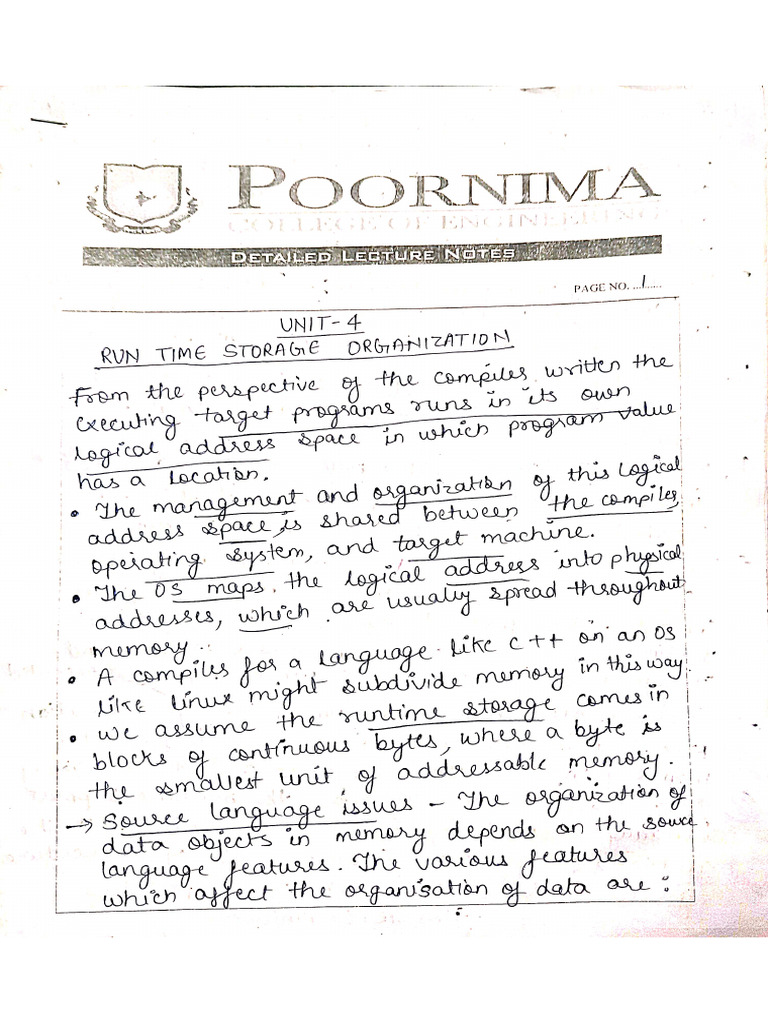 POORNIMA
COLLEGE OF ENGINEERING
DETAILED LECTURE NOTES
PAGE NO. ...1......
UNIT-4
RUN TIME STORAGE ORGANIZATION
From the perspective of the compiles written the
executing target programs runs in its own
logical address space in which program value
has a location.
• The management and organization of this logical
address space, is shared between the compiles,
operating system, and target machine.
• The OS maps the logical address into physical
addresses, which are usually spread throughout
memory.
• A compiles for a language like C++ on an OS
like linux might subdivide memory in this way.
• we assume the runtime storage comes in
blocks of continuous bytes, where a byte is
the smallest unit of addressable memory.
→ Source language issues - The organization of
data objects in memory depends on the souce
language features. The various features
which affect the organisation of data are :